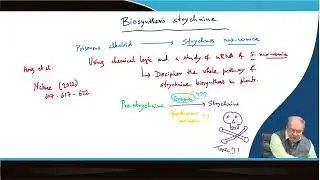 Biosynthesis strychnine
Poisonous alkaloid → Strychnos nux-vomica
Hong et al.
Using chemical logic and a study of mRNA of S. nux-vomica
Nature (2022)
607 : 617 - 622
→ Decipher the whole pathway of
strychnine biosynthesis in plants.
Enzyme ???
Pre strychnine → Strychnine
Spontaneous
??
Toxic !!